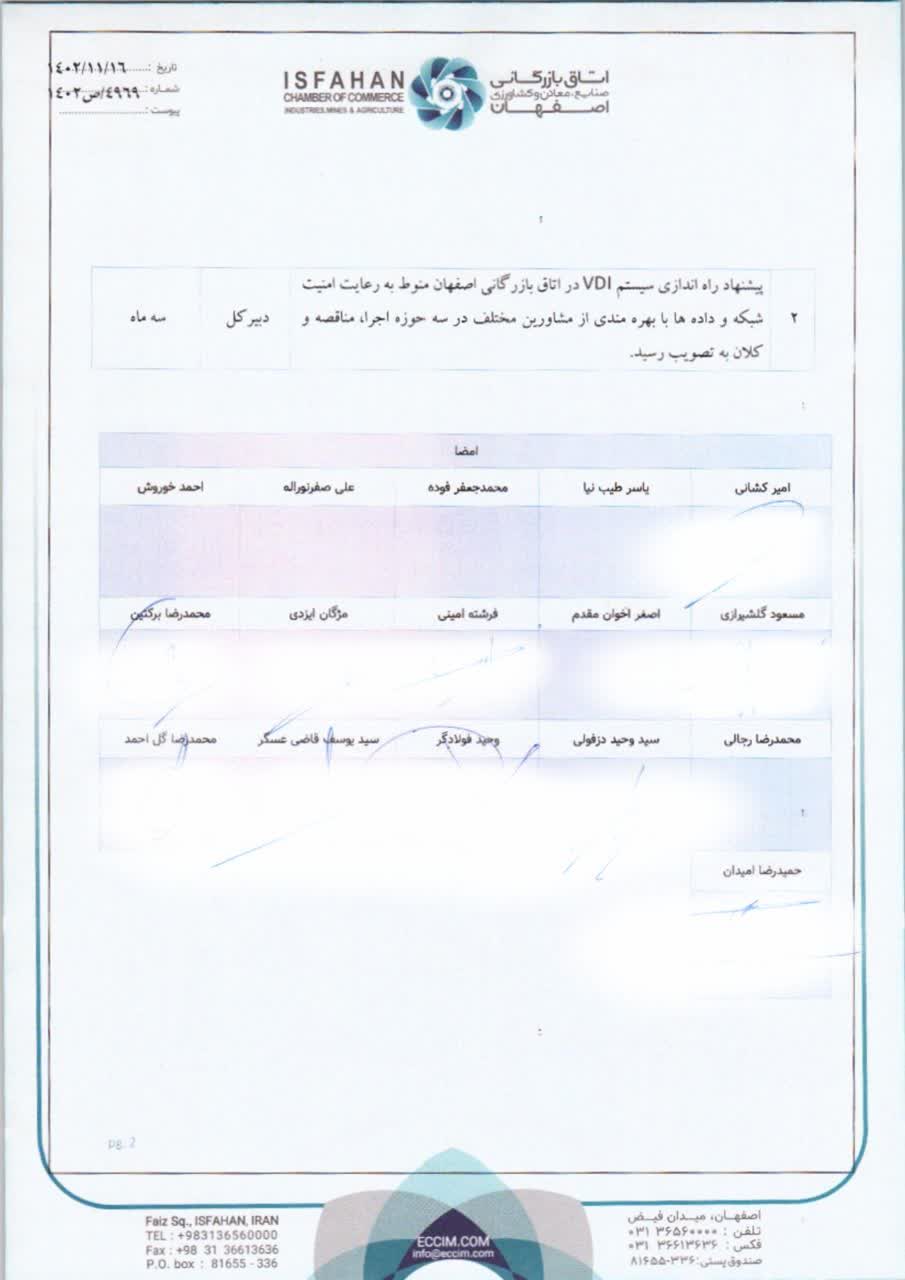 تاریخ :......۱٤۰۲/۱۱/۱٦
شماره :......۱٤۰۲/ص/٤۹٦۹
پیوست :
ISFAHAN
CHAMBER OF COMMERCE
INDUSTRIES, MINES & AGRICULTURE
اتاق بازرگانی
صنایع، معادن و کشاورزی
اصفهان
۲
پیشنهاد راه اندازی سیستم VDI در اتاق بازرگانی اصفهان منوط به رعایت امنیت
شبکه و داده ها با بهره مندی از مشاورین مختلف در سه حوزه اجرا، مناقصه و
کلان به تصویب رسید.
دبیر کل
سه ماه
امضا
امیر کشانی	یاسر طیب نیا	محمدجعفر فوده	علی صفرنوراله	احمد خوروش
مسعود گلشیرازی	اصغر اخوان مقدم	فرشته امینی	مژگان ایزدی	محمدرضا برکتین
محمدرضا رجالی	سید وحید دزفولی	وحید فولادگر	سید یوسف قاضی عسگر	محمدرضا گل احمد
حمیدرضا امیدان
pg. 2
Faiz Sq., ISFAHAN, IRAN
TEL : +983136560000
Fax : +98 31 36613636
P.O. box : 81655 - 336
ECCIM.COM
info@eccim.com
اصفهان، میدان فیض
تلفن : ۳۶۵۶۰۰۰۰ ۰۳۱
فکس : ۳۶۶۱۳۶۳۶ ۰۳۱
صندوق پستی: ۳۳۶-۸۱۶۵۵